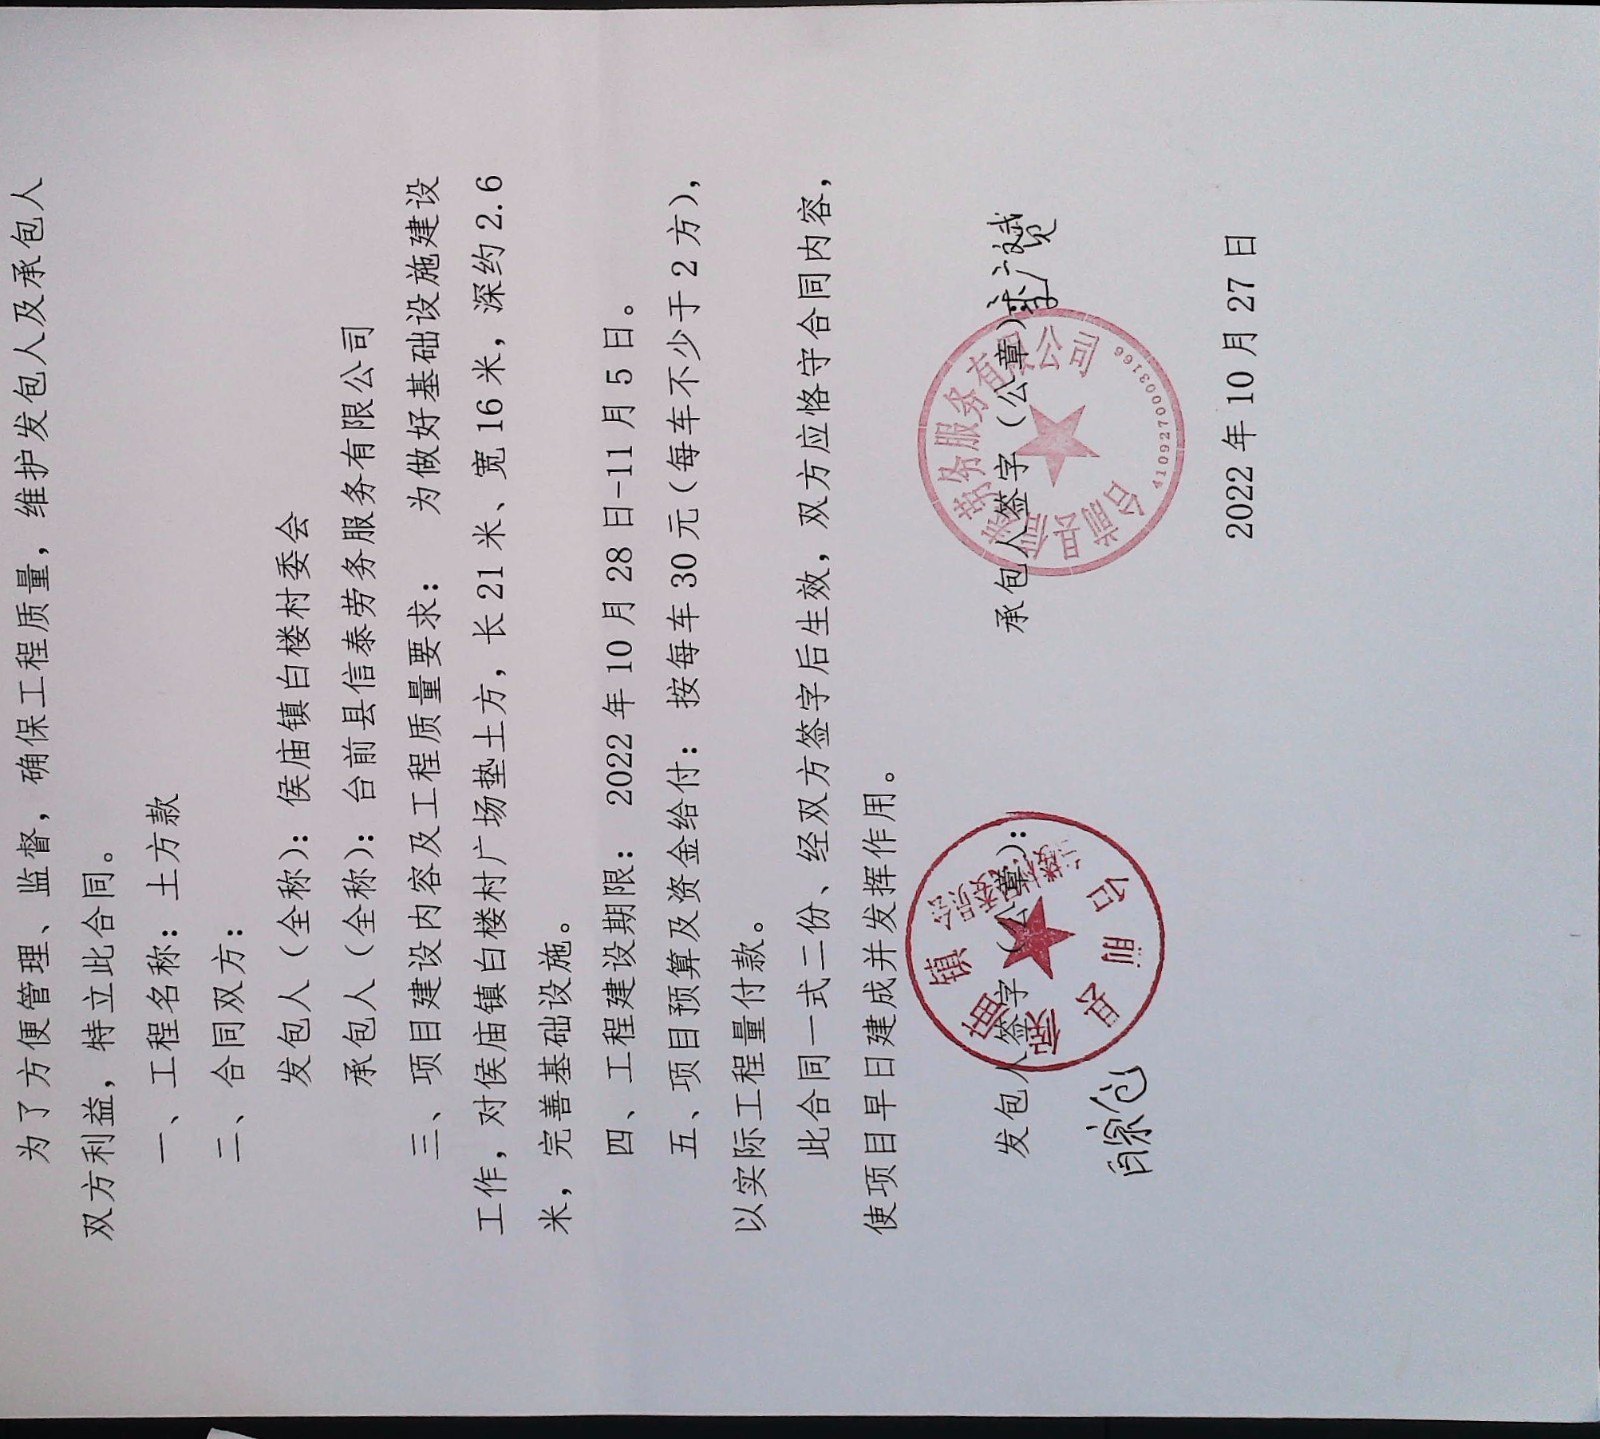 为了方便管理、监督，确保工程质量，维护发包人及承包人
双方利益，特立此合同。
一、工程名称：土方款
二、合同双方：
发包人（全称）：侯庙镇白楼村委会
承包人（全称）：台前县信泰劳务服务有限公司
三、项目建设内容及工程质量要求： 为做好基础设施建设
工作，对侯庙镇白楼村广场垫土方，长 21 米、宽 16 米，深约 2.6
米，完善基础设施。
四、工程建设期限： 2022 年 10 月 28 日-11 月 5 日。
五、项目预算及资金给付： 按每车 30 元（每车不少于 2 方），
以实际工程量付款。
此合同一式二份、经双方签字后生效，双方应恪守合同内容，
使项目早日建成并发挥作用。
发包人签字（公章）： 承包人签字（公章）
台前县侯庙镇
楼村
委员会
台前县
劳务服务有限公司
4109270003166
2022 年 10 月 27 日